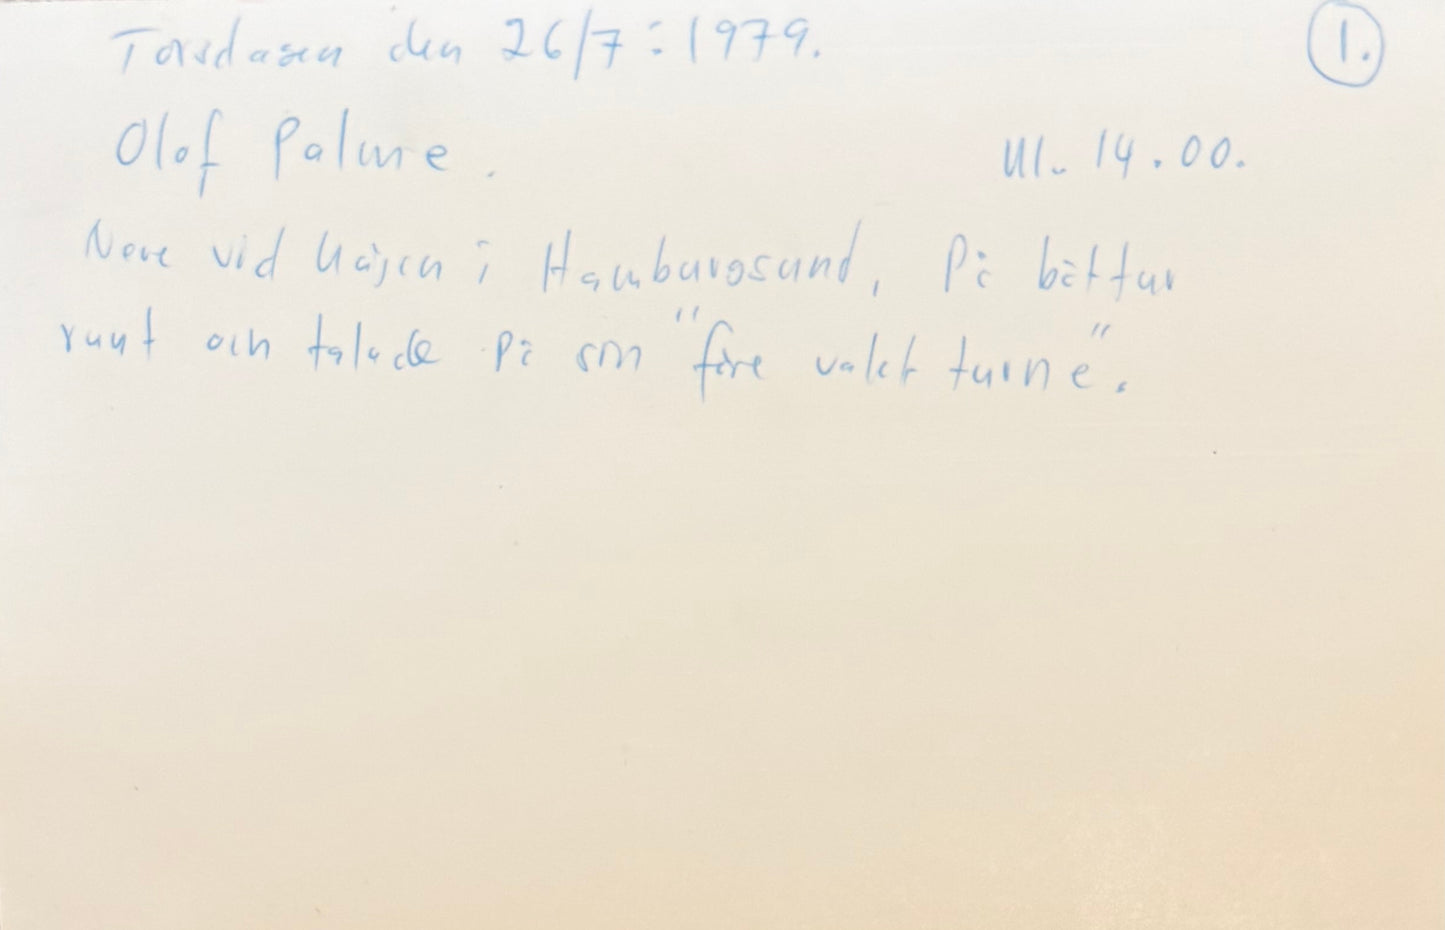 Torsdagen den 26/7:1979. 1.
Olof Palme. Kl. 14.00.
Nere vid Kajen i Hamburgsund, På båttur
runt och talade på sin "före valet turne".